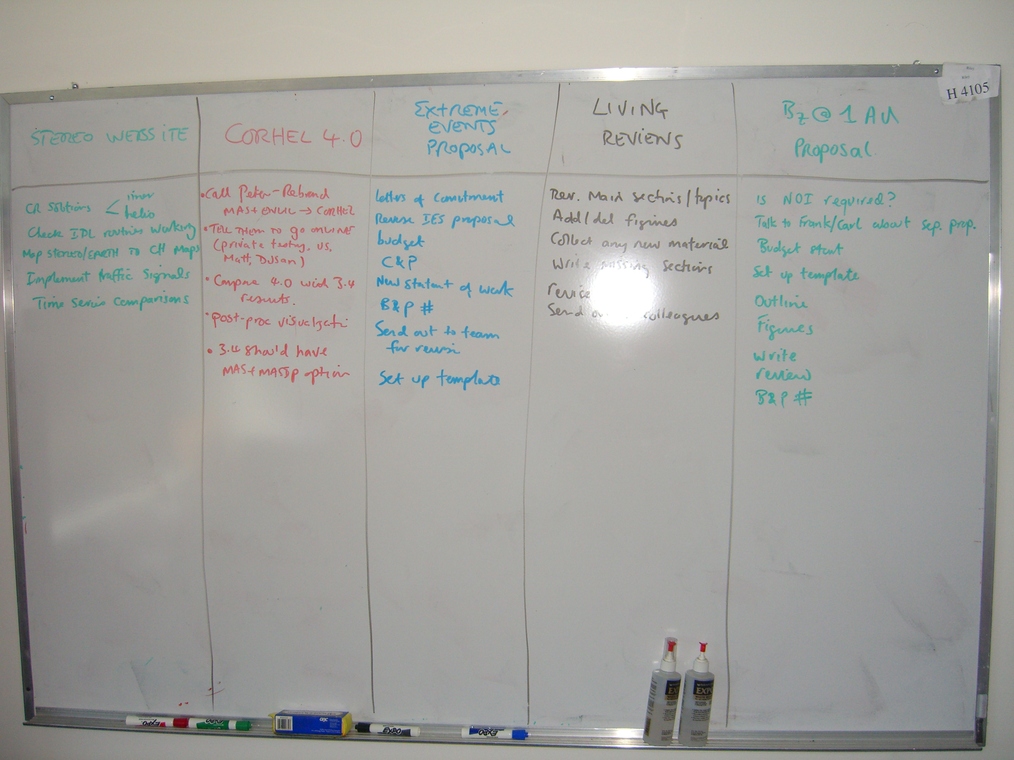 H 4105
STEREO WEBSITE
CR Solutions < inner
helio
Check IDL routines working
Map STEREO/EARTH to CH Maps
Implement traffic signals
Time Series Comparisons
CORHEL 4.0
• Call Peter - Rebrand
MAS+ENLIL → CORHEL
• TELL them to go online
(private testing, us,
Matt, Dusan)
• Compare 4.0 with 3.4
results.
• post-proc visualizati
• 3.4 should have
MAS+ option
EXTREME
EVENTS
PROPOSAL
Letters of commitment
IES proposal
budget
C&P
New statemt of work
B&P #
Send out to team
for
Set up template
LIVING
REVIEWS
Rev. Main sections/topics
Add/del figures
Collect any new material
Write missing sections
Send colleagues
Bz @ 1 AU
PROPOSAL
Is NOI required?
Talk to Frank/Carl about Sep. prop.
Budget start
Set up template
Outline
Figures
write
review
B&P #
EXPO
EXPO
EXPO
EXPO
EXPO